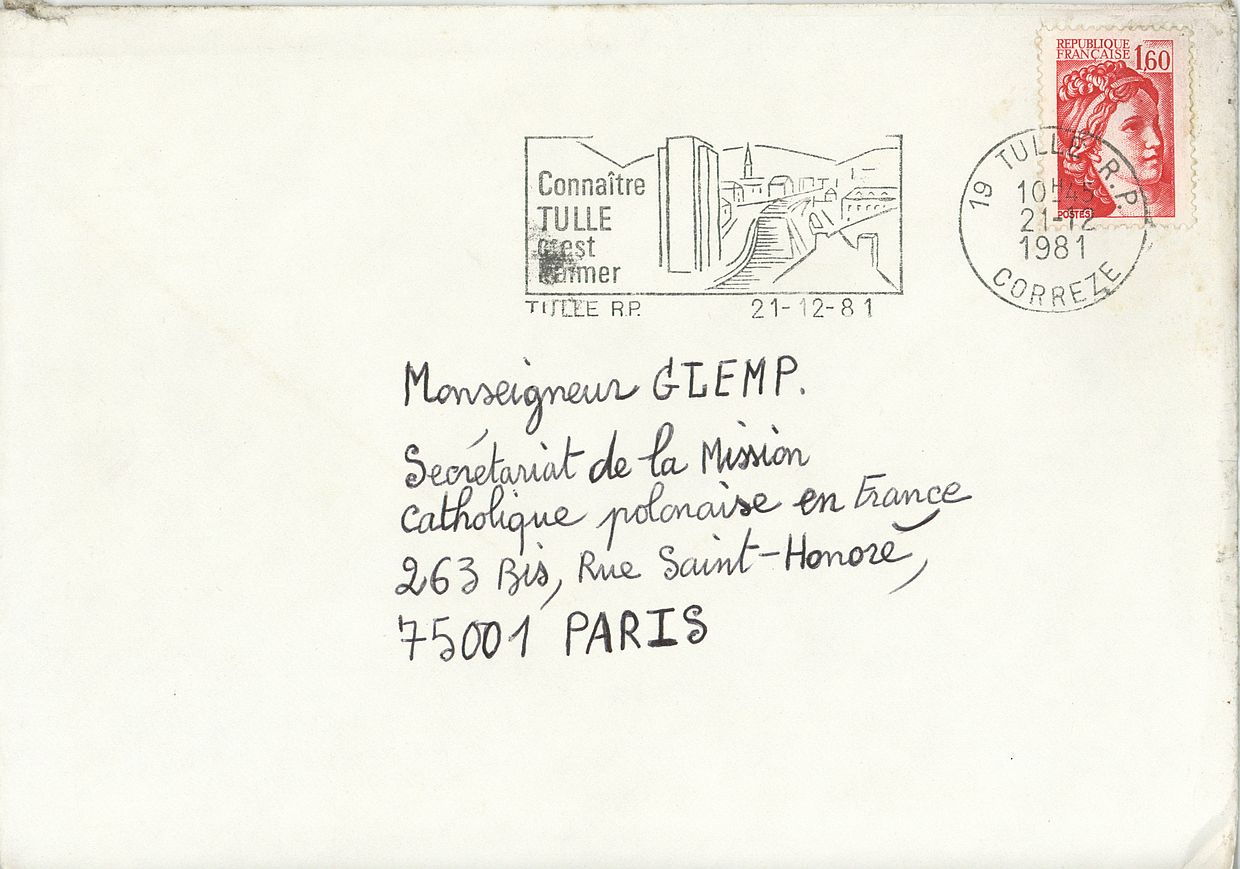 REPUBLIQUE
FRANÇAISE 1,60
POSTES
19 TULLE R.P.
10H45
21-12
1981
CORREZE
Connaître
TULLE
c'est
l'aimer
TULLE R.P. 21-12-81
Monseigneur GLEMP.
Secrétariat de la Mission
catholique polonaise en France
263 Bis, Rue Saint-Honoré,
75001 PARIS